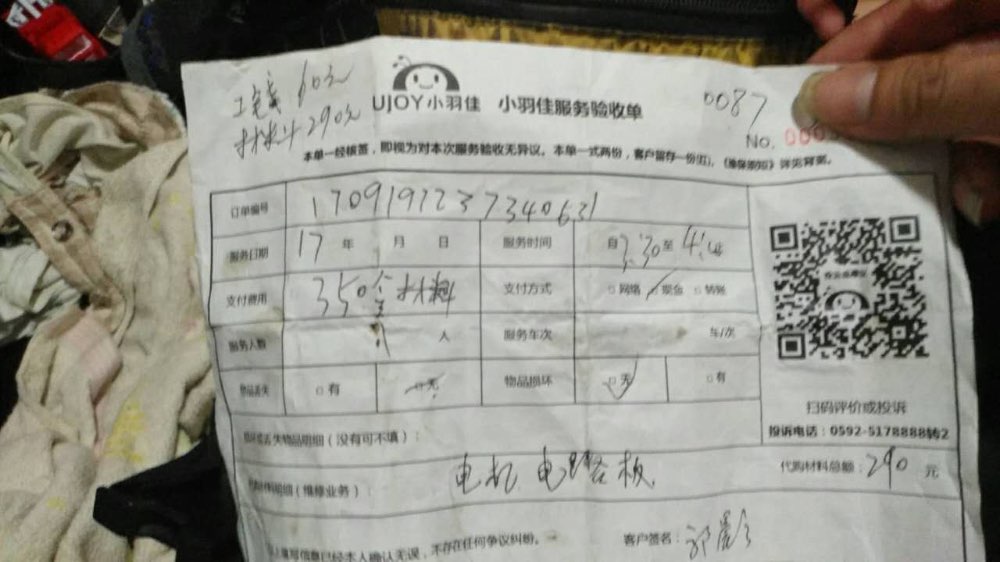 工钱 60元
材料 290元
UJOY小羽佳 小羽佳服务验收单
0087
No. 000
本单一经核签，即视为对本次服务验收无异议。本单一式两份，客户留存一份
订单编号 1709197237340631
服务日期 17 年 月 日 服务时间 自 3:30 至 4:
支付费用 350含材料 支付方式 □网络 □现金 □转账
服务人数 1 人 服务车次 车/次
物品丢失 □有 □无 物品损坏 □无 □有
扫码评价或投诉
投诉电话：0592-5178888转2
丢失物品明细（没有可不填）：
代购材料总额：290 元
明细（维修业务）： 电机 电路板
填写信息已经本人确认无误，不存在任何争议纠纷。 客户签名：